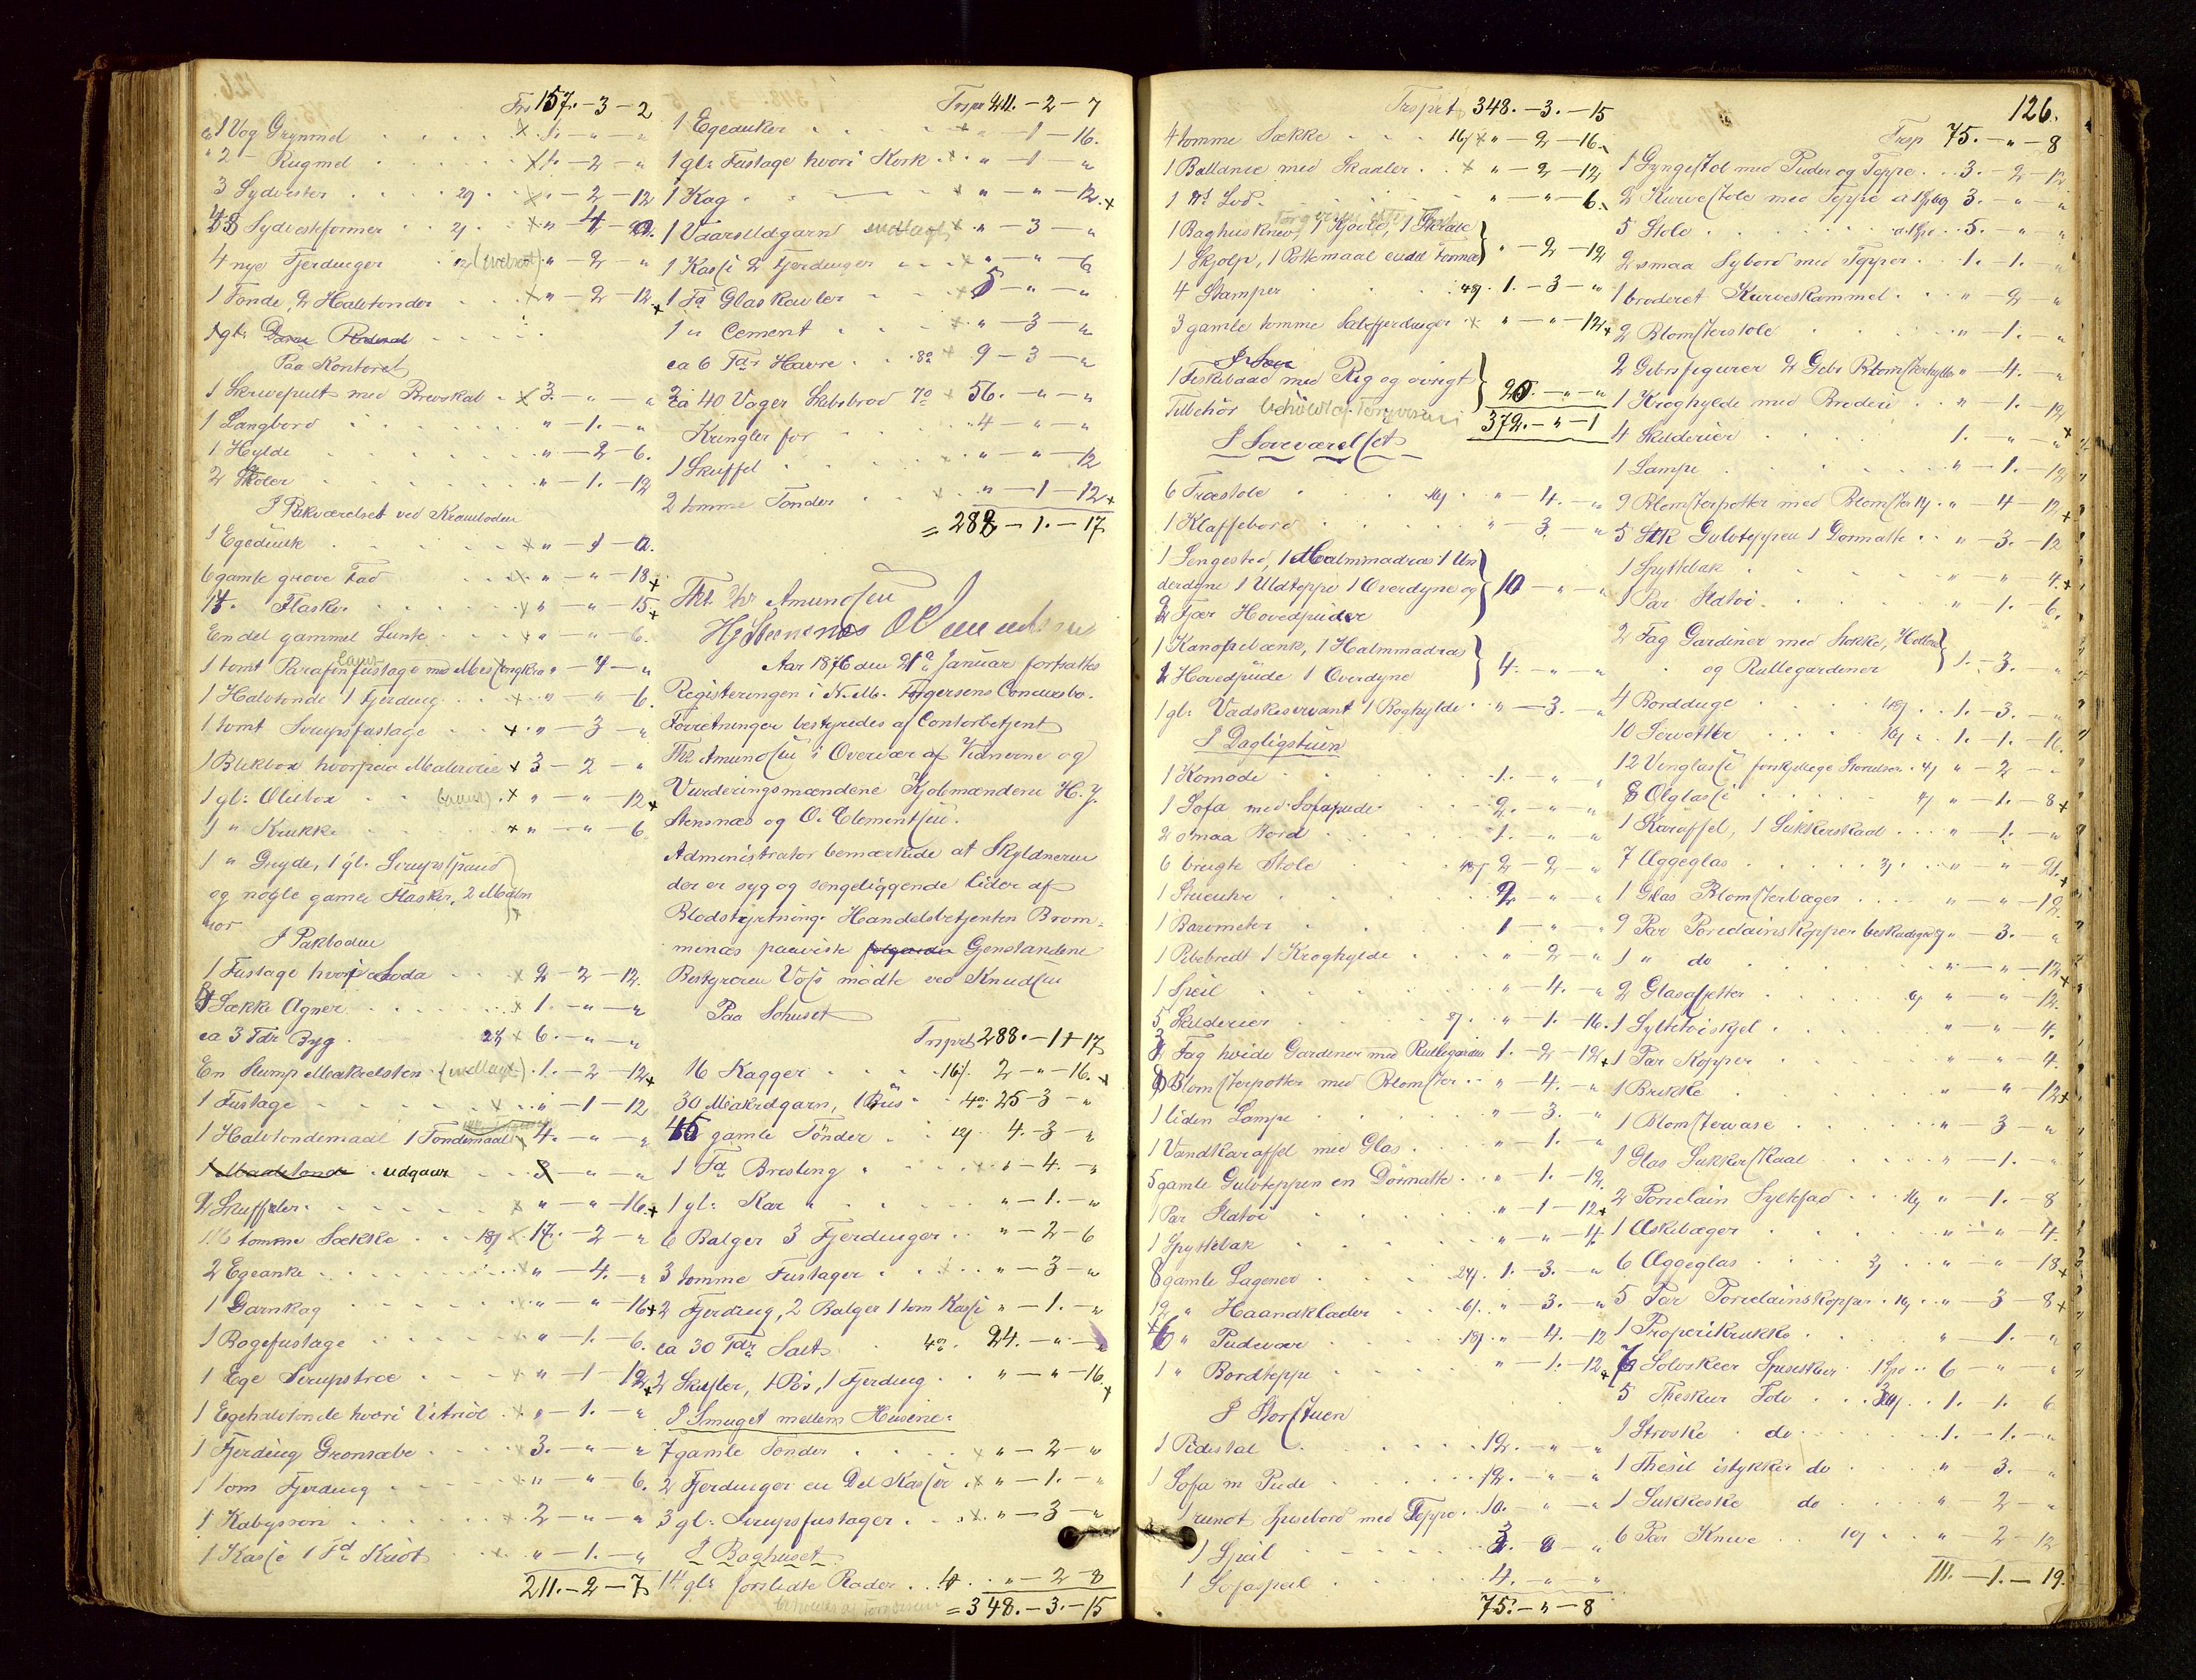 Trs 157. - 3 - 2
ca 1 Vog Grynmel × 1. - " - "
" 2 - Rugmel × 1. - 2 - "
3 Sydvester 29 × " - 2 - 12
Sydvestformer " - 4 -
4 nye Fjerdinger " - 2 - "
1 Tonde, 2 Halvtonder × " - 2 - 12
1 gl.
Paa Kontoret
1 Skrivepult med Brevskab × 3. - " - "
1 Langbord " - 1. - "
1 Hylde " - 2 - 6.
2 Stoler " - 1. - 12
I Pakværelset ved Kramboden
1 Egedunk × " - 1 - 12.
6 gamle grove Fad × " - " - 18
Flasker × " - " - 15
En del gammel Lunte × " - " - 6.
1 tomt Parafinfustage med Messingkran " - 4 - "
1 Halvtonde 1 Fjerding × " - " - 6.
1 tomt Sirupsfustage × " - 3 - "
1 Blikbox hvorpaa Malerolie × 3 - 2 - "
1 gl: Oliebox × " - " - 12
1 " Krukke × " - " - 6
1 " Gryde, 1 gl. Sirupsspand
og nogle gamle Flasker, 2
I Pakboden
1 Fustage hvori Soda × 2 - 2 - 12.
Sække Agner × 1. - " - "
ca 3 Tdr Byg 2 × 6. - " - "
En Slump Makrelsten (vedlagt) 1. - 2 - 12
1 Fustage × " - 1 - 12
1 Halvtondemaal 1 Tondemaal × 4. - " - "
1 Maaletonde udgaar 3 - " - "
2 Skuffeler × " - " - 16
116 tomme Sække 18 × 17. - 2 - "
2 Egeanke × " - 4. - "
1 Garnkag " - " - 16
1 Bogefustage × " - 1. - 6.
1 Ege Sirupstræ " - 1 - 12
1 Egehalvtonde hvori Vitriol × " - 1. - "
1 Fjerding Gronsæbe × 3. - " - "
1 tom Fjerding × " - " - 6.
1 Kabysson 2 - " - "
1 Kasse 1 Td Kridt × " - 1. - "
211. - 2 - 7
Trspr 211. - 2 - 7
1 Egeduker × " - 1 - 16.
1 gl: Fustage hvori Kork × " - 1 - "
1 Kag × " - " - 12
1 Vaarsildgarn vedlagt × " - 3 - "
1 Kasse 2 Fjerdinger × " - " - 6
1 Td Glaskavler × 5 - " - "
1 " Cement × " - 3 - "
ca 6 Tdr Havre 8 × 9 - 3 - "
ca 40 Voger Skibsbrod 7 × 56. - " - "
Kringler for 4 - " - "
1 Skuffel × " - " - 12
2 tomme Tonder × " - 1 - 12
= 288 - 1. - 17
Thr Amundsen
Hj Stensnes O Clementsen
Aar 1876 den 21de Januar fortsattes
Registeringen i N. M. Torgersens Concursbo.
Forretningen bestyredes af Contorbetjent
Thr Amundsen i Overvær af Vidnerne og
Vurderingsmændene Kjobmændene H. J.
Stensnæs og O. Clementsen.
Administrator bemærkede at Skyldneren
der er syg og sengeliggende lider af
Blodstyrtning. Handelsbetjenten Brom-
menæs paaviste folgende Gjenstandene
Bestyreren Voss mødte ved Knudsen
Paa Sohuset
Trsprt 288. - 1 - 17
16 Kagger 16 2 - " - 16.
30 Makrelgarn, 1 Bús 4 25 - 3 - "
gamle Tønder 12 4. - 3 - "
1 Td Bresling × " - 4. - "
1 gl: Kar " - 1. - "
6 Balger 3 Fjerdinger " - 2 - 6
3 tomme Fustager " - 3 - "
2 Fjerding, 2 Balger 1 tom Kasse " - 1. - "
ca 30 Tdr Salt 4 24. - " - "
2 Skufler, 1 Pøs, 1 Fjerding " - " - 16
I Smuget mellem Husene.
7 gamle Tonder × " - 2 - "
2 Fjerdinger en Del Kasser × " - 1. - "
3 gl: Sirupsfustager × " - 3 - "
I Baghuset
gl: forslidte Rader " - 2 - 8
= 348. - 3. - 15
126.
Trsprt 348. - 3. - 15
4 tomme Sække 16 × " - 2 - 16
1 Ballance med Skaaler × " - 2 - 12
1 Lod " - " - 6
1 Baghuskniv, 1 Hjoelve,
1 Skjolp, 1 Pottemaal endel " - 2 - 12
4 Stamper 48 1. - 3 - "
3 gamle tomme Sæbefjerdinger × " - " - 12
1 Fiskebaad med Rig og ovrigt
Tilbehør 20. - " - "
372. - " - 1
I Soveværelset
6 Træstole 16 " - 4. - "
1 Klaffebord " - 3. - "
1 Sengested, 1 Halmmadras 1 Un-
derdyne 1 Uldteppe 1 Overdyne og 10 - " - "
2 Fjær Hovedpuder
1 Kanapebænk, 1 Halmmadras
Hovedpude 1 Overdyne 4. - " - "
1 gl: Vadskeservant 1 Boghylde " - 3. - "
I Dagligstuen
1 Komode 1. - " - "
1 Sofa med Sofapude 2. - " - "
2 smaa Bord 1. - " - "
6 brugte Stole 48 2 - 2 - "
1 Stueuhr 2 - " - "
1 Barometer 1 - " - "
1 Pibebredt 1 Kroghylde " - 2 - "
1 Speil " - 4. - "
5 Skilderier 8 " - 1. - 16.
3 Fag hvide Gardiner med Rullegardin 1. - 2 - 12
Blomsterpotter med Blomster " - 4. - "
1 liden Lampe " - 3. - "
1 Vandkaraffel med Glas " - 1. - "
5 gamle Gulvteppen en Dørmatte " - 1. - 12
1 Par Statoi " - 1 - 12
1 Spyttebak " - " - 4
8 gamle Lagener 24 1. - 3. - "
12 " Haandklæder 6 " - 3. - "
6 " Pudevaar 18 " - 4. - 12
1 " Bordteppe " - 1. - 12
I Storstuen
1 Pidestal 12. - " - "
1 Sofa m Pude 12. - " - "
1 rundt Spisebord med Teppe 10. - " - "
1 Speil 3 - " - "
1 Sofaspeil 4. - " - "
75. - " - 8
Trsp 75. - " - 8
1 Gyngestol med Puder og Teppe 3. - 2 - 12
2 Kurvestole med Teppe 3. - " - "
5 Stole 5. - " - "
2 smaa Sybord med Tepper 1. - 1. - "
1 broderet Kurveskammel " - 2 - "
2 Blomsterstole " - 1. - "
2 Gibsfigurer 2 Gibs Blomsterhylle " - 4. - "
1 Kroghylde med Broderi " - 1. - 12
4 Skilderier 1. - " - "
1 Lampe " - 1. - 12
9 Blomsterpotter med Blomster " - 4 - 12
5 Stk Gulvteppen 1 Dormatte " - 3. - 12
1 Spyttebak " - " - 4.
1 Par Statoi " - 1. - 6.
2 Fag Gardiner med Stokke,
og Rullegardener 1. - 3. - "
4 Bordduge 48 1. - 3. - "
10 Servietter 16 1. - 1. - 16.
12 Vinglasse forskjellege Storrelser 4 " - 2 - "
8 Olglasse 4 " - 1. - 8
1 Karaffel, 1 Sukkerskaal " - 1. - "
7 Æggeglas 3 " - " - 21.
1 Glas Blomsterbæger " - " - 12.
9 Par Porcelainskopper beskadiget " - 3. - "
1 " do " - " - 12
2 Glasasjetter 6 " - " - 12.
1 Syltetoiskjel " - " - 4.
1 Par Kopper " - " - 4.
1 Brikke " - " - 12
1 Blomstervase " - 3 - "
1 Glas Sukkerskaal " - 1. - "
2 Porcelain Syltefad 16 " - 1. - 8
1 Askebæger " - " - 4.
6 Æggeglas 3 " - " - 18
5 Par Porcelainskopper 16 " - 3 - 8
1 Properikrukke " - 1. - "
Solvskeer Spiseskeer 1 Spd 6 - " - "
5 Theskeer Solv 1. - 1. 6
1 Stroske do 1. - 1. - "
1 Thesil istykker do " - 3. "
1 Sukkeske do " - 2 - "
6 Par Knive 10 " - 2 - 12
111. - 1. - 19.